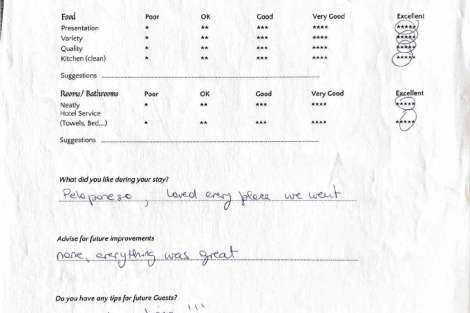 Food Poor OK Good Very Good Excellent
Presentation * ** *** **** *****
Variety * ** *** **** *****
Quality * ** *** **** *****
Kitchen (clean) * ** *** **** *****
Suggestions
Rooms/ Bathrooms Poor OK Good Very Good Excellent
Neatly * ** *** **** *****
Hotel Service
(Towels, Bed,..) * ** *** **** *****
Suggestions
What did you like during your stay?
Peloponeso, loved every place we went
Advise for future improvements
none, everything was great
Do you have any tips for future Guests?